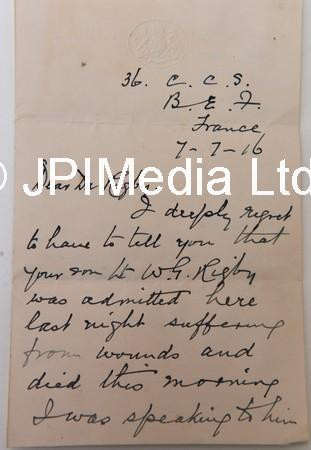 36. C. C. S.
B. E. F.
France
7-7-16
© JPIMedia Ltd
Dear Dr Rigby.
I deeply regret
to have to tell you that
your son Lt W.G. Rigby
was admitted here
last night suffering
from wounds and
died this morning
I was speaking to him